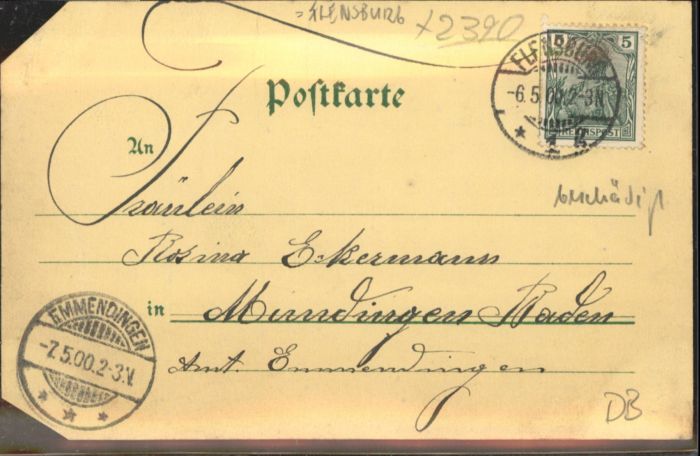 =FLENSBURG
+2390
FLENSBURG
-6.5.00.2-3N.
* 1 k
5
REICHSPOST
Postkarte
An
Fräulein
Rosina Eckermann
in Mundingen Baden
Amt. Emmendingen
beschädigt
EMMENDINGEN
-7.5.00.2-3.V.
* * *
DB